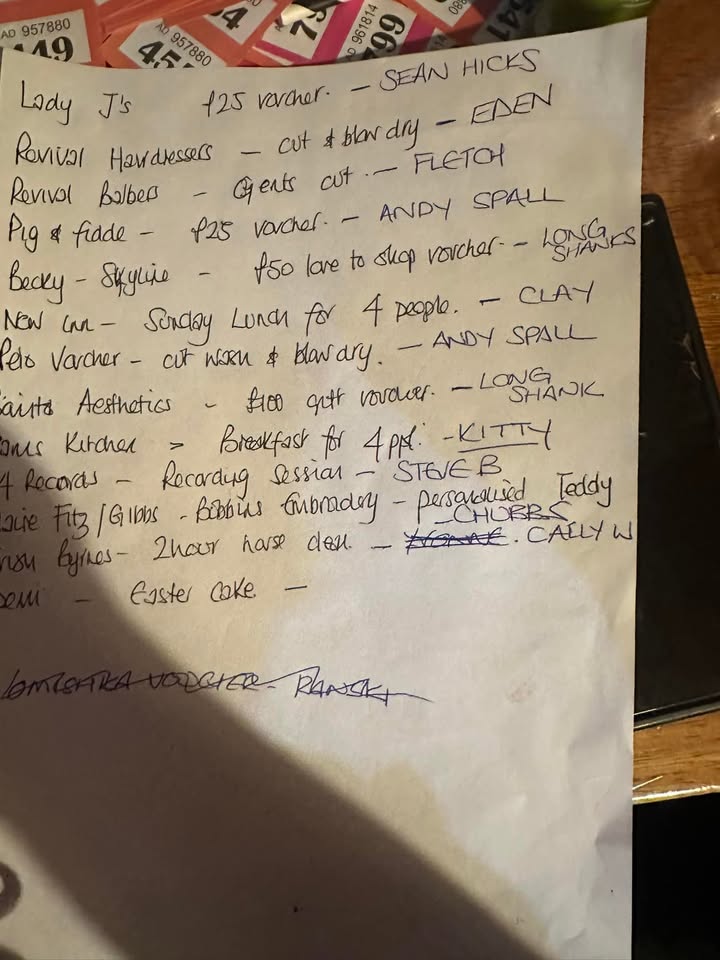 AD 957880
449
AD 957880
45
4
7
AD 961814
799
086
541
Lady J's £25 vorcher. - SEAN HICKS
Revival Hairdressers - cut & blow dry - EDEN
Revival Balbers - Gents cut. - FLETCH
Pig & fidde - £25 vorcher. - ANDY SPALL
Becky - Skyline - £50 love to shop vorcher - LONG
SHANKS
New Inn - Sunday Lunch for 4 people. - CLAY
Pelo Varcher - cut wash & blow dry. - ANDY SPALL
Saints Aesthetics - £100 gift voucher. - LONG
SHANK
oms Kitchen > Breakfast for 4 ppl. - KITTY
4 Records - Recording Session - STEVE B
Fitz/Gibbs - Bobbins Embroidery - personalised Teddy
- CHUBBS
Byrnes - 2 hour house clean - CALLY W
emi - Easter Cake -